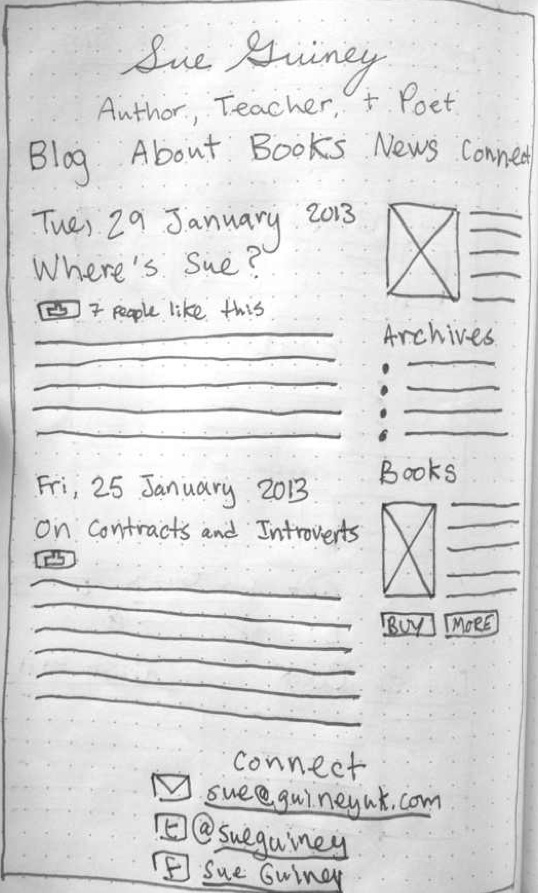 Sue Guiney
Author, Teacher, + Poet
Blog About Books News Connect
Tues, 29 January 2013
Where's Sue?
7 people like this
Fri, 25 January 2013
On Contracts and Introverts
Archives
Books
BUY MORE
Connect
sue@guineyuk.com
t @sueguiney
f Sue Guiney